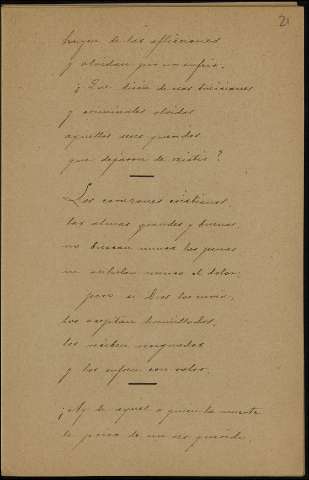 21
huyen de las aflicciones
y olvidan por no sufrir.
¿Qué diria de sus traiciones
y criminales olvidos
aquellos seres queridos
que dejaron de existir?
Los corazones cristianos,
las almas grandes y buenas
no buscan nunca las penas
ni anhelan nunca el dolor;
pero si Dios los envia,
los aceptan humillados,
los reciben resignados
y los sufren con valor.
¡Ay de aquel a quien la muerte
le priva de un ser querido,